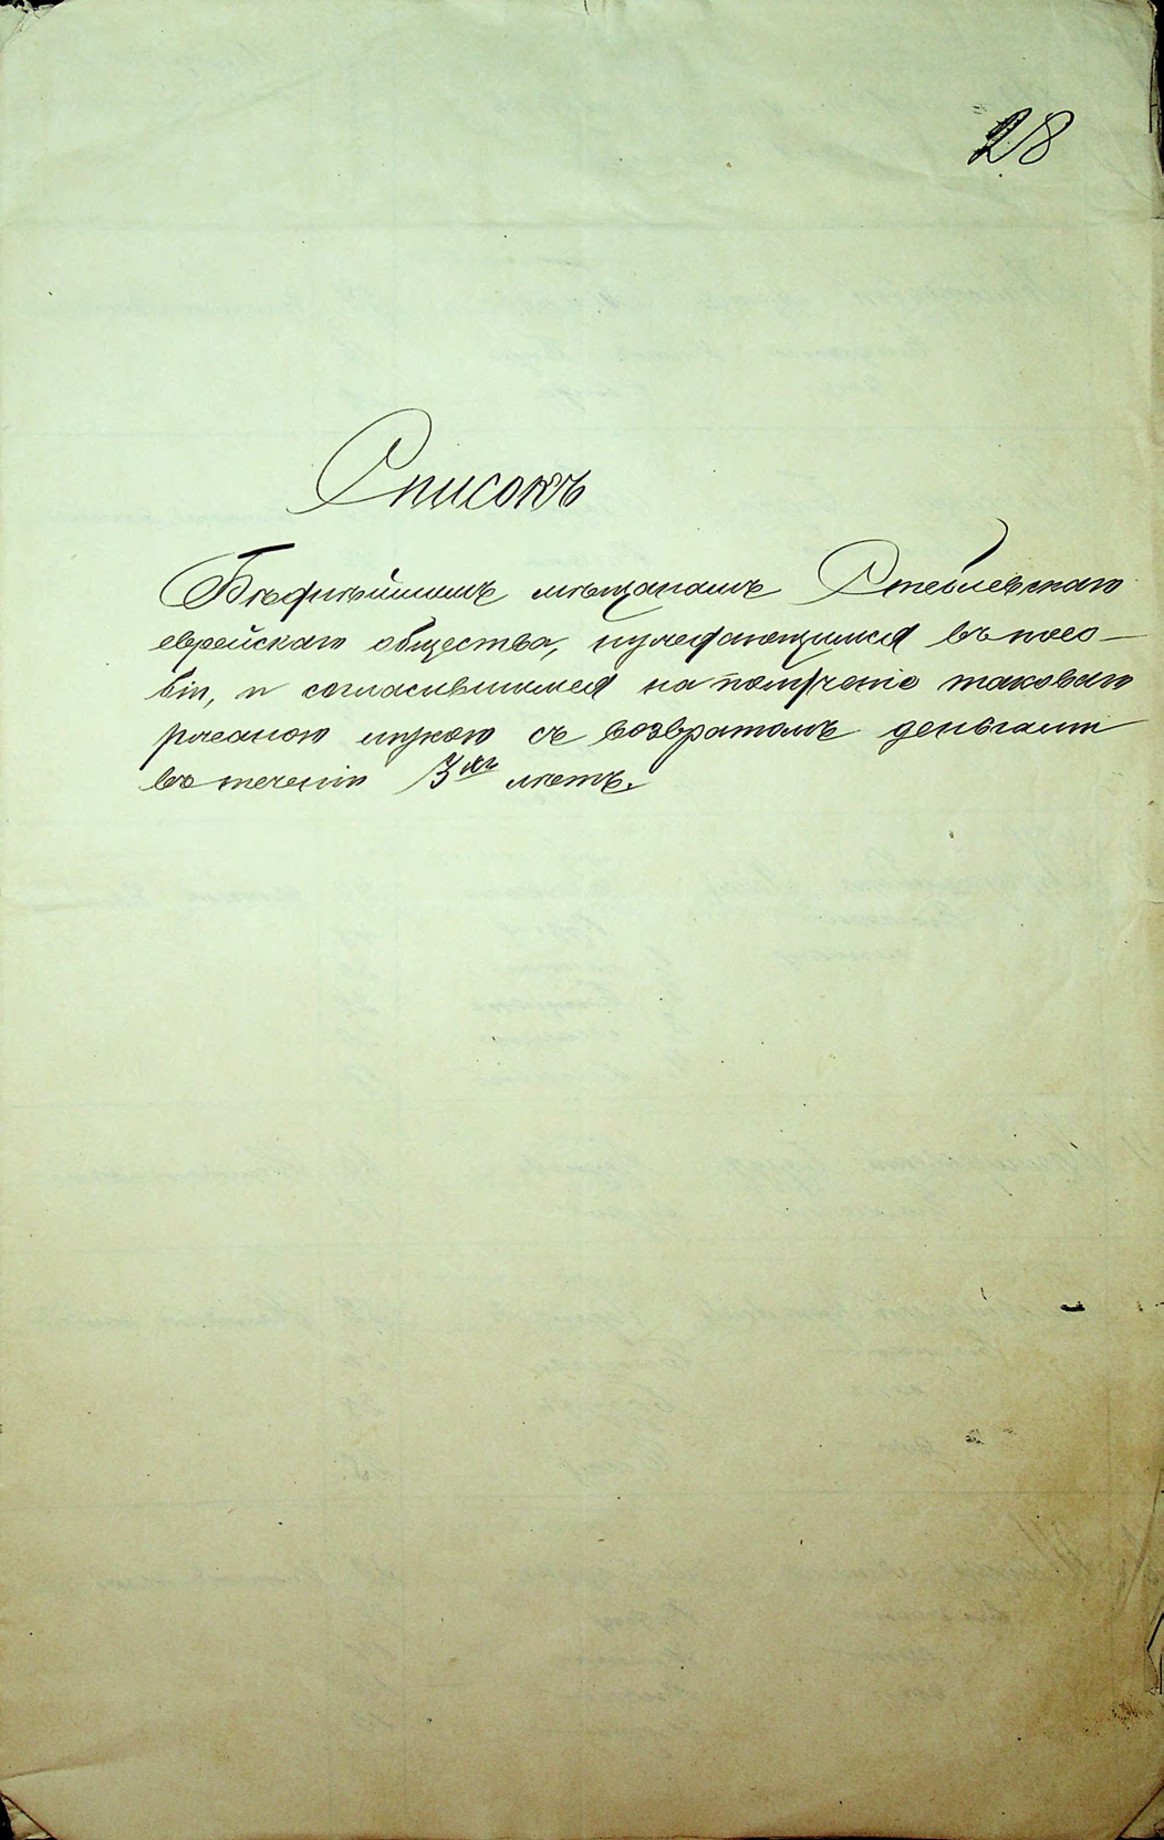 28
Списокъ
Бѣднѣйшимъ мѣщанамъ Стеблевскаго
еврейскаго общества, нуждающимся въ посо-
біи, и согласившимся на полученіе таковаго
ржаною мукою съ возвратомъ деньгами
въ теченіи 3хъ лѣтъ.